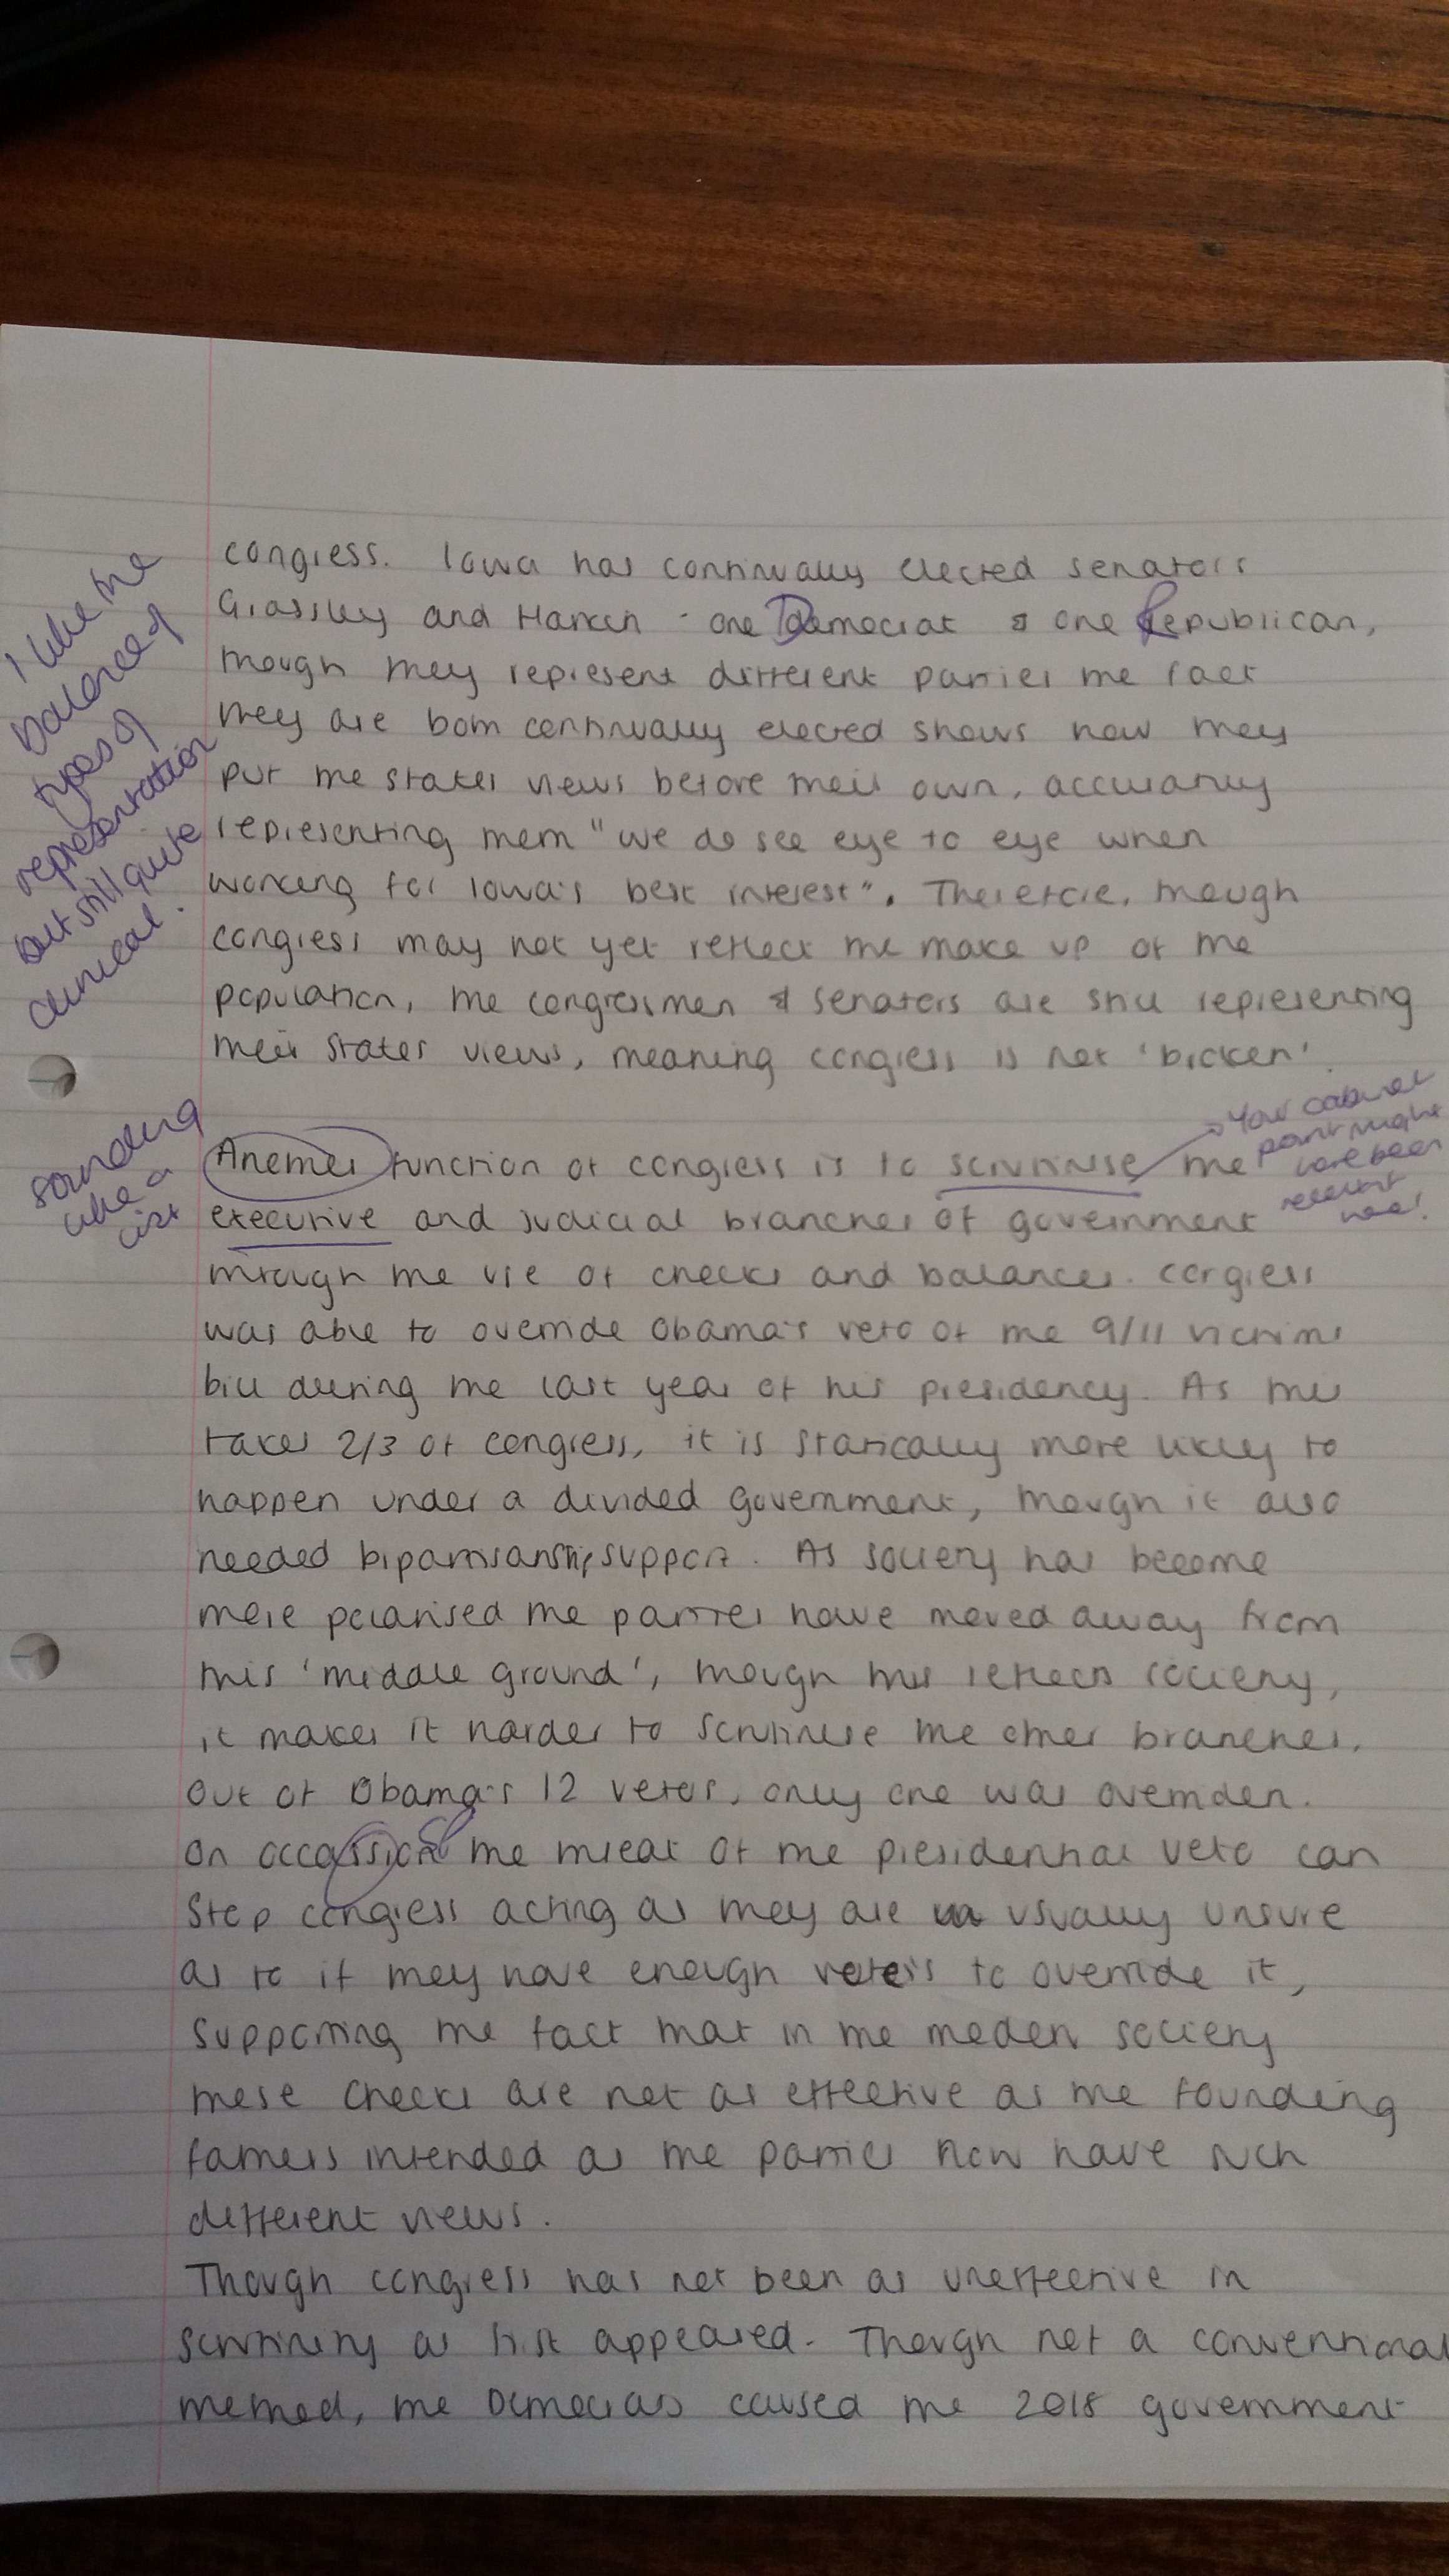 congress. Iowa has continually elected senators
Grassley and Harkin - one Democrat & one Republican,
though they represent different parties the fact
they are both continually elected shows how they
put the states views before their own, accuratly
representing them "we do see eye to eye when
working for Iowa's best interest". Therefore, though
congress may not yet reflect the make up of the
population, the congressmen & senators are still representing
their states views, meaning congress is not 'broken'.
I like the
balance of
types of
representation
but still quite
clinical.
Another function of congress is to scrutinise the
executive and judicial branches of government
through the use of checks and balances. congress
was able to override Obama's veto of the 9/11 victims
bill during the last year of his presidency. As this
takes 2/3 of congress, it is statically more likely to
happen under a divided government, though it also
needed bipartisanship support. As society has become
more polarised the parties have moved away from
this 'middle ground', though this reflects society,
it makes it harder to scrutinise the other branches.
Out of Obama's 12 vetos, only one was overriden.
On occassion the threat of the presidential veto can
stop congress acting as they are usually unsure
as to if they have enough voters to override it,
supporting the fact that in the modern society
these checks are not as effective as the founding
fathers intended as the parties now have such
different views.
Though congress has not been as uneffective in
scrutinity as first appeared. Though not a conventional
method, the Democrats caused the 2018 government
sounding
like a
list
Your cabinet
point might
have been
relevant
here!
sp